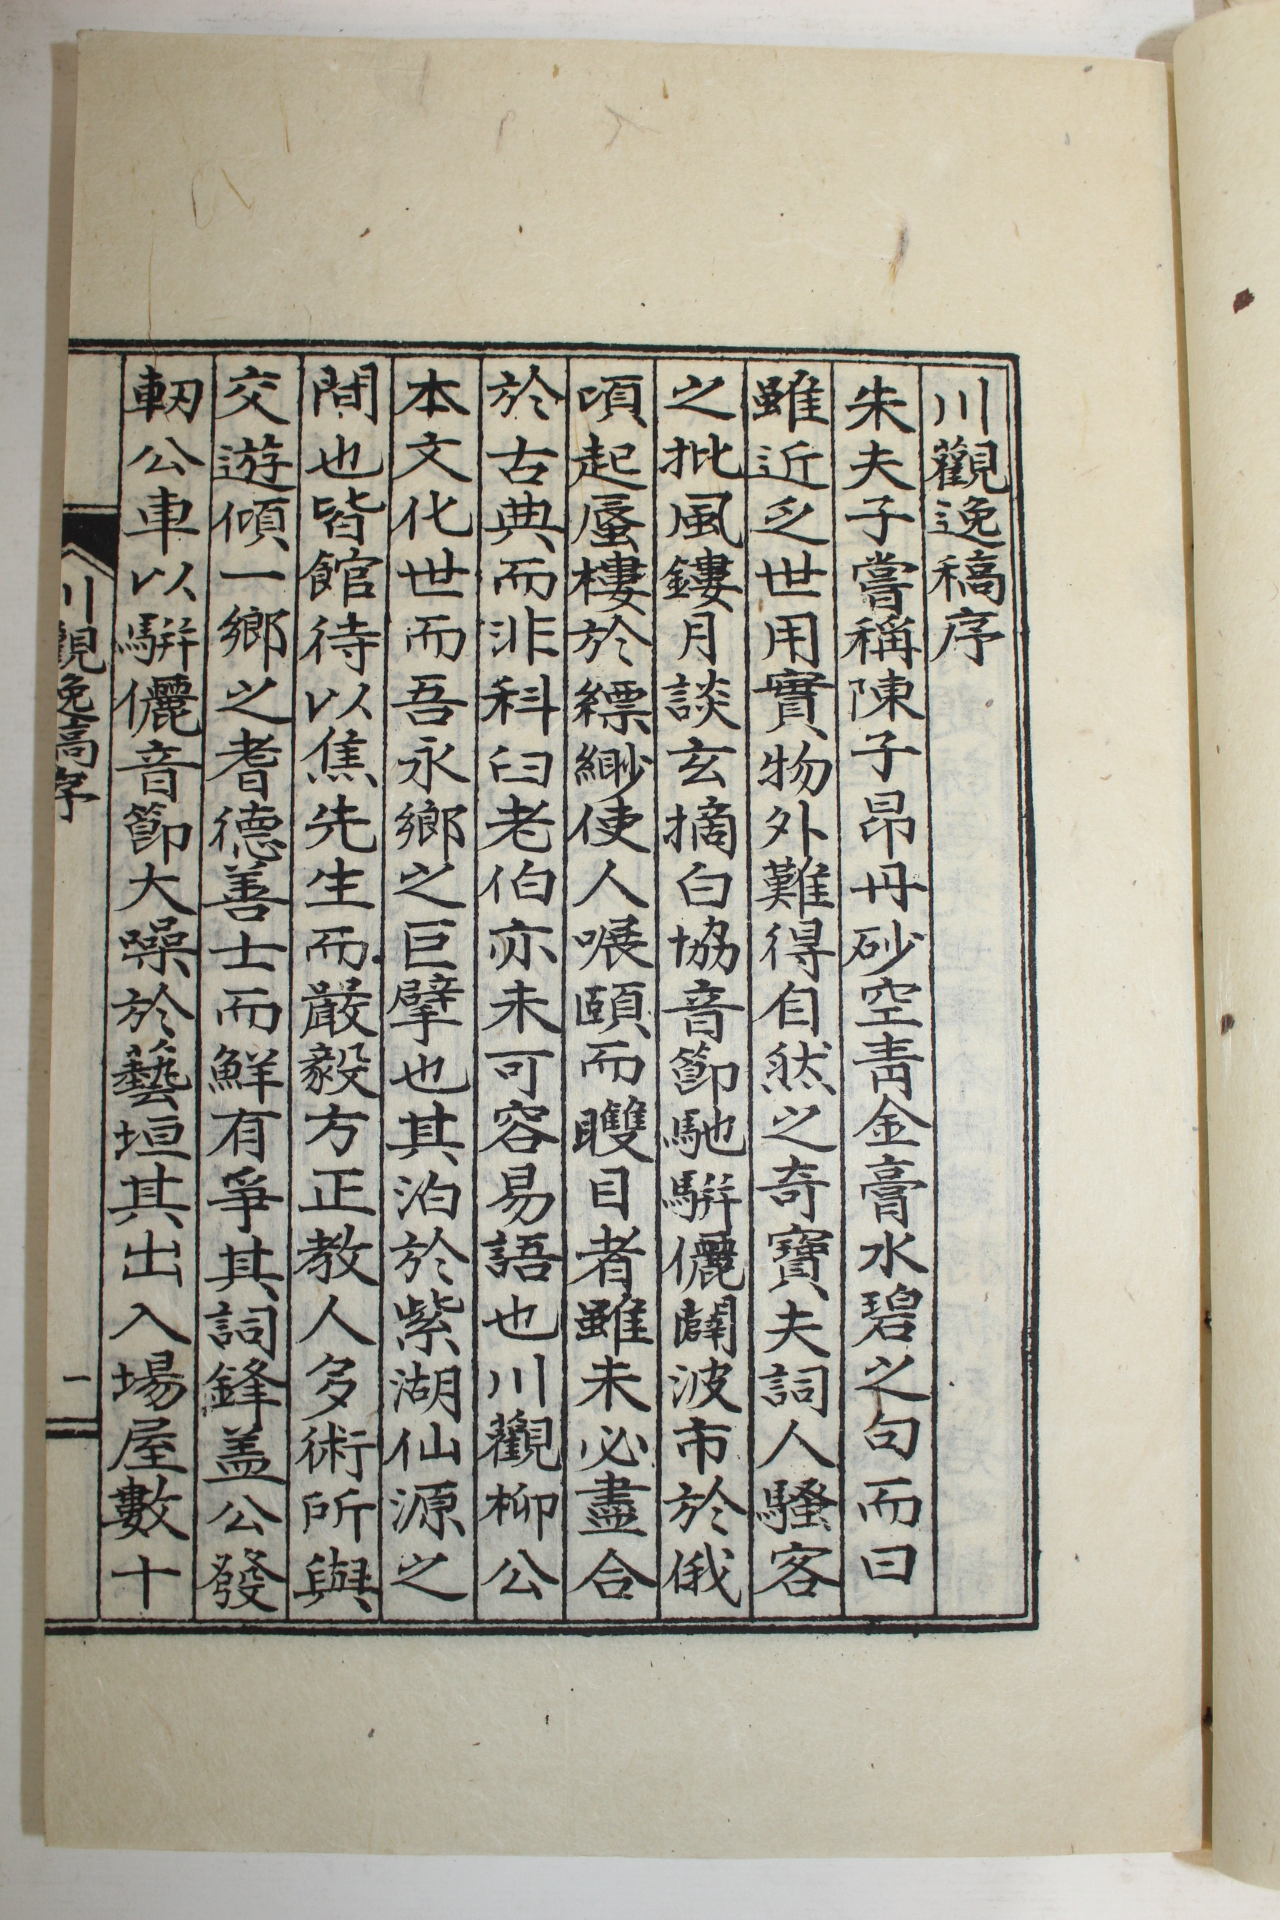 川觀逸稿序
朱夫子嘗稱陳子昂丹砂空靑金膏水碧之句而曰
雖近乏世用實物外難得自然之奇寶夫詞人騷客
之批風鏤月談玄摘白協音節馳騈儷闢波市於俄
頃起蜃樓於縹緲使人㗛頤而矍目者雖未必盡合
於古典而非科臼老伯亦未可容易語也川觀柳公
本文化世而吾永鄕之巨擘也其泊於紫湖仙源之
間也皆館待以焦先生而嚴毅方正教人多術所與
交遊傾一鄕之耆德善士而鮮有爭其詞鋒盖公發
軔公車以騈儷音節大噪於藝垣其出入場屋數十
川觀逸稿序
一